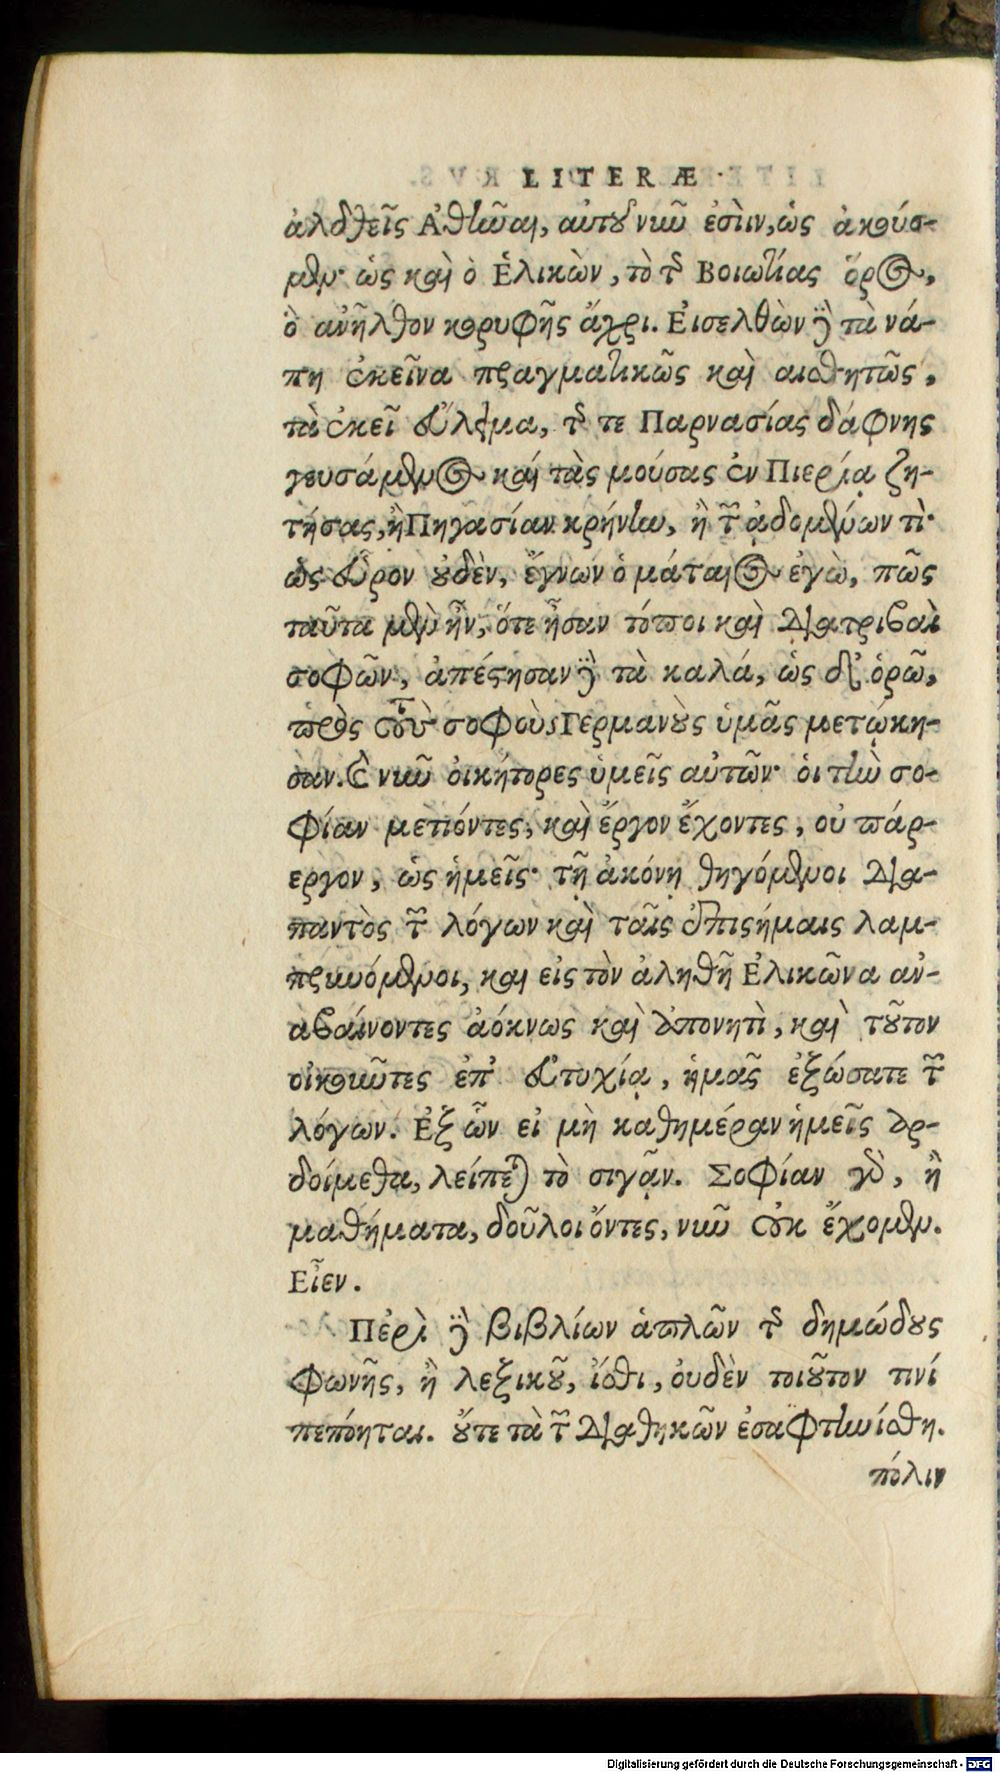 LITERÆ
ἀληθεῖς Ἀθῆναι, αὐτοῦ νῦν ἐστὶν, ὡς ἀκούο-
μεν· ὡς καὶ ὁ Ἑλικὼν, τὸ τῆς Βοιωτίας ὄρος,
ὃ ἀνῆλθον κορυφῆς ἄχρι. Εἰσελθὼν δὲ τὰ νά-
πη ἐκεῖνα πραγματικῶς καὶ αἰσθητῶς,
τὰ ἐκεῖ τῆς τε Παρνασίας δάφνης
γευσάμενος καὶ τὰς μούσας ἐν Πιερίᾳ ζη-
τήσας, ἢ Πηγασίαν κρήνην, ἢ τῶν ᾀδομένων τὶ·
ὡς εὗρον οὐδὲν, ἔγνων ὁ μάταιος ἐγὼ, πῶς
ταῦτα μὲν ἦν, ὅτε ἦσαν τόποι καὶ διατριβαὶ
σοφῶν, ἀπέστησαν δὲ τὰ καλά, ὡς ὁρῶ,
πρὸς τοὺς σοφοὺς Γερμανοὺς ὑμᾶς μετῴκη-
σαν. Καὶ νῦν οἰκήτορες ὑμεῖς αὐτῶν· οἱ τὴν σο-
φίαν μετιόντες, καὶ ἔργον ἔχοντες, οὐ πάρ-
εργον, ὡς ἡμεῖς· τῇ ἀκόνῃ θηγόμενοι δια-
παντὸς τῶν λόγων καὶ ταῖς ἐπιστήμαις λαμ-
πρυνόμενοι, καὶ εἰς τὸν ἀληθῆ Ἑλικῶνα ἀν-
αβαίνοντες ἀόκνως καὶ ἀπονητὶ, καὶ τοῦτον
οἰκοῦντες ἐπ' εὐτυχίᾳ, ἡμᾶς ἐξώσατε τῶν
λόγων. Ἐξ ὧν εἰ μὴ καθημέραν ἡμεῖς ἀρ-
δοίμεθα, λείπεται τὸ σιγᾷν. Σοφίαν γὰρ, ἢ
μαθήματα, δοῦλοι ὄντες, νῦν οὐκ ἔχομεν.
Εἶεν.
Περὶ δὲ βιβλίων ἁπλῶν τῆς δημώδους
φωνῆς, ἢ λεξικοῦ, ἴσθι, οὐδὲν τοιοῦτον τινί
πεπόηται. οὔτε τὰ τῶν διαθηκῶν ἐσαφηνίσθη.
πόλιν
Digitalisierung gefördert durch die Deutsche Forschungsgemeinschaft - DFG